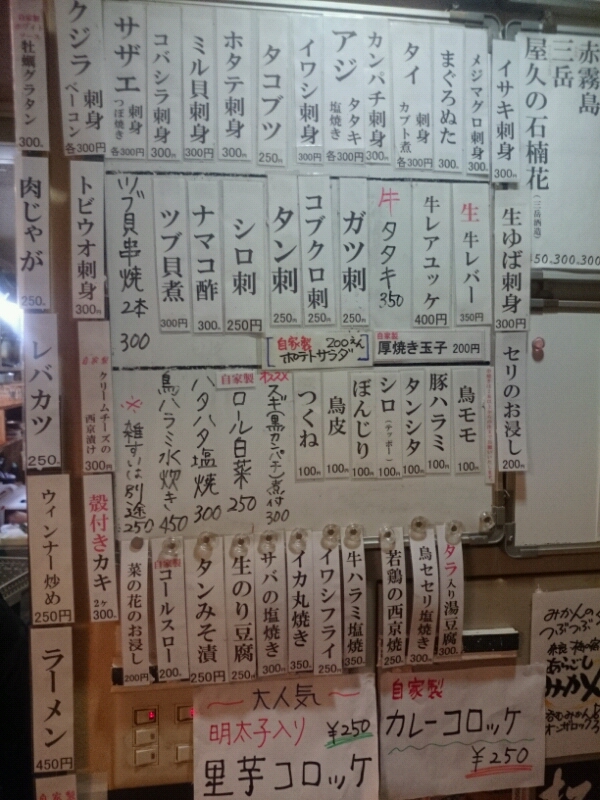 赤霧島
三岳
屋久の石楠花
(三岳酒造)
50.300.300
イサキ刺身 300円
メジマグロ刺身 300円
まぐろぬた 300円
タイ 刺身 カブト煮 各300円
カンパチ刺身 300円
アジ タタキ 塩焼き 各300円
イワシ刺身 300円
タコブツ 250円
ホタテ刺身 300円
ミル貝刺身 300円
コバシラ刺身 300円
サザエ 刺身 つぼ焼き 各300円
クジラ 刺身 ベーコン 各300円
自家製
牡蠣グラタン 300円
生ゆば刺身 300円
生 牛レバー 350円
牛レアユッケ 400円
牛タタキ 350
ガツ刺 250円
コブクロ刺 250円
タン刺 250円
シロ刺 250円
ナマコ酢 300円
ツブ貝煮 300円
ツブ貝串焼 2本 300
トビウオ刺身 300円
肉じゃが 250円
自家製 ポテトサラダ 200えん
自家製 厚焼き玉子 200円
セリのお浸し 200円
鳥モモ 100円
豚ハラミ 100円
タンシタ 100円
シロ(テッポー) 100円
ぼんじり 100円
鳥皮 100円
つくね 100円
オススメ
スギ(黒カンパチ)煮付 300
自家製
ロール白菜 250
ハタハタ塩焼 300
鳥ハラミ水炊き 450
※雑すいは別途250
自家製
クリームチーズの西京漬け 300円
レバカツ 250円
タラ入り湯豆腐 300円
鳥セセリ塩焼き 300円
若鶏の西京焼 250円
牛ハラミ塩焼 350円
イワシフライ 250円
イカ丸焼き 350円
サバの塩焼き 300円
生のり豆腐 250円
タンみそ漬 250円
自家製
コールスロー 200円
菜の花のお浸し 200円
殻付きカキ 2ヶ 300円
ウィンナー炒め 250円
ラーメン 450円
自家製
〜大人気〜
明太子入り ¥250
里芋コロッケ
自家製
カレーコロッケ
¥250
みかんの
つぶつぶ
あらごし
みかん